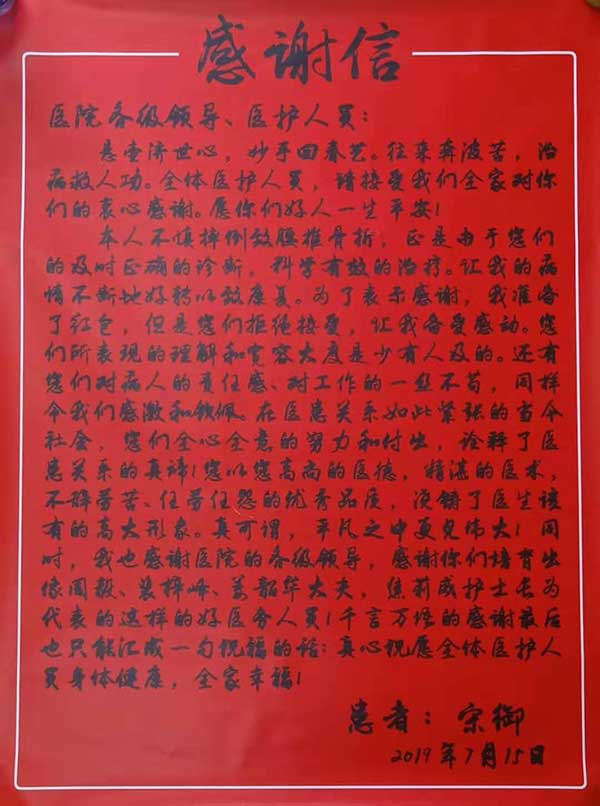 感谢信
医院各级领导、医护人员：
悬壶济世心，妙手回春艺。往来奔波苦，治
病救人功。全体医护人员，请接受我们全家对你
们的衷心感谢。愿你们好人一生平安！
本人不慎摔倒致腰椎骨折，正是由于您们
的及时正确的诊断，科学有效的治疗。让我的病
情不断地好转以致康复。为了表示感谢，我准备
了红包，但是您们拒绝接受，让我备受感动。您
们所表现的理解和宽容大度是少有人及的。还有
您们对病人的责任感、对工作的一丝不苟，同样
令我们感激和钦佩。在医患关系如此紧张的当今
社会，您们全心全意的努力和付出，诠释了医
患关系的真谛！您以您高尚的医德，精湛的医术，
不辞劳苦、任劳任怨的优秀品质，浇铸了医生该
有的高大形象。真可谓，平凡之中更见伟大！同
时，我也感谢医院的各级领导，感谢你们培育出
像周毅、裴梓峰、姜韶华大夫，焦莉威护士长为
代表的这样的好医务人员！千言万语的感谢最后
也只能汇成一句祝福的话：真心祝愿全体医护人
员身体健康，全家幸福！
患者：宗御
2019年7月15日